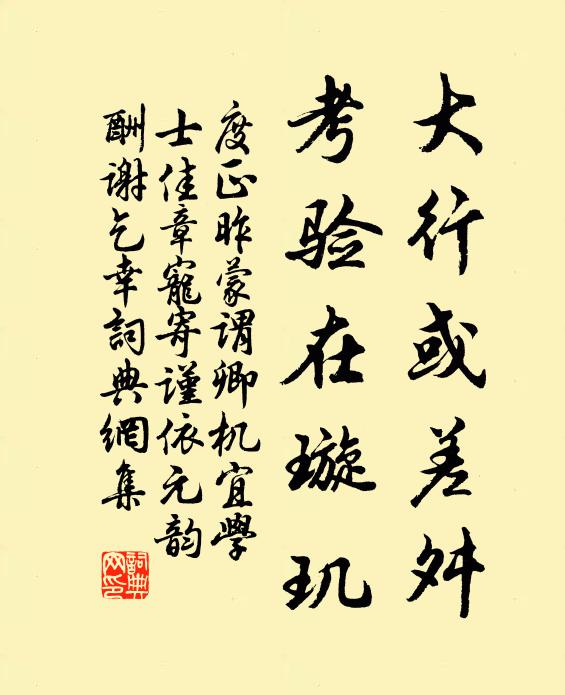 大行或差舛
考验在璇玑
度正昨蒙谓卿机宜学
士佳章寵寄谨依元韵
酬谢乞幸詞典網集
詞典
网印